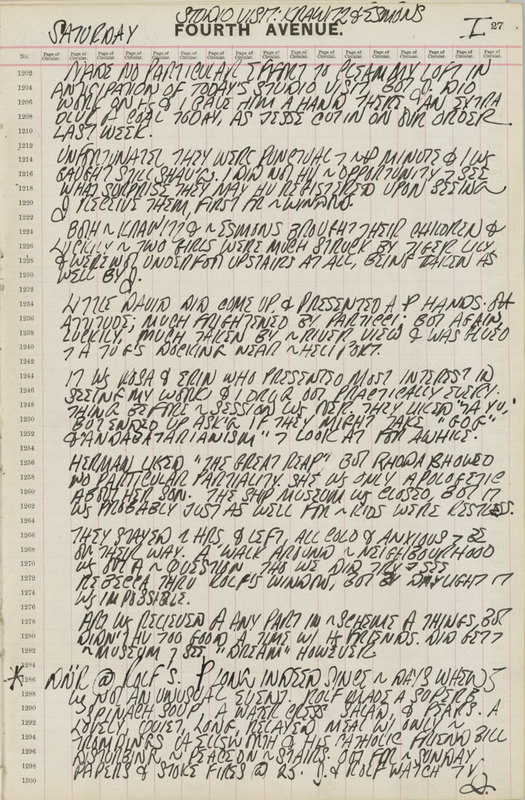 STUDIO VISIT: KRAWITZ & ESMONS
SATURDAY
FOURTH AVENUE.
I 27
No. Page of Circular. Page of Circular. Page of Circular. Page of Circular. Page of Circular. Page of Circular. Page of Circular. Page of Circular. Page of Circular. Page of Circular.
1202 MADE NO PARTICULAR EFFORT TO CLEAN MY LOFT IN
1204 ANTICIPATION OF TODAY'S STUDIO VISIT, BUT J. DID
1206 WORK ON HS & I GAVE HIM A HAND THERE. AN EXTRA
1208 OF COAL TODAY, AS JESSE CUT IN ON OUR ORDER
1210 LAST WEEK.
1212
1214 UNFORTUNATELY THEY WERE PUNCTUAL MINUTE & I WS
1216 CAUGHT STILL SHAVG. I DID NOT HV ~ OPPORTUNITY SEE
1218 WHAT SURPRISE THEY MAY HV REGISTERED UPON SEEING
1220 J RECEIVE THEM, FIRST FR ~ WINDOW.
1222
1224 BOTH ~ KRAWITZ & ~ ESMONS BROUGHT THEIR CHILDREN &
1226 LUCKILY ~ TWO GIRLS WERE MUCH STRUCK BY TIGER LILY
1228 & WERE NOT UNDERFOOT UPSTAIRS AT ALL, BEING TAKEN AS
1230 WELL BY J.
1232
1234 LITTLE DAVID DID COME UP, & PRESENTED A HANDS-OFF
1236 ATTITUDE; MUCH FRIGHTENED BY; BUT AGAIN,
1238 LUCKILY, MUCH TAKEN BY ~ RIVER VIEW & WAS GLUED
1240 A TUG'S DOCKING NEAR ~ HELIPORT.
1242
1244 IT WS ROSA & ERIN WHO PRESENTED MOST INTEREST IN
1246 SEEING MY WORK; & I DRUG OUT PRACTICALLY EVERY
1248 THING BEFORE ~ SESSION WS OVER. THEY LIKED
1250 BUT ENDED UP ASK'G IF THEY MIGHT TAKE "GOG"
1252 & "ANDABATARIANISM" LOOK AT FOR AWHILE.
1254
1256 HERMAN LIKED "THE GREAT REAP" BUT RHODA SHOWED
1258 NO PARTICULAR PARTIALITY. SHE WS ONLY APOLOGETIC
1260 ABOUT HER SON. THE SHIP MUSEUM WS CLOSED, BUT IT
1262 WS PROBABLY JUST AS WELL FOR ~ KIDS WERE RESTLESS.
1264
1266 THEY STAYED 2 HRS. & LEFT, ALL COLD & ANXIOUS BE
1268 ON THEIR WAY. A WALK AROUND ~ NEIGHBOURHOOD
1270 WS OUT ~ QUESTION, THO WE DID TRY SEE
1272 REBECCA THRU ROLF'S WINDOW, BUT BY DAYLIGHT IT
1274 WS IMPOSSIBLE.
1276
1278 WS RELIEVED ANY PART IN ~ SCHEME THINGS, BUT
1280 DIDN'T HV TOO GOOD A TIME W/ FRIENDS. DID GET
1282 ~ MUSEUM SEE "DREAM" HOWEVER.
1284
1286 * DNR @ ROLF'S. LONG INDEED SINCE ~ DAYS WHEN
1288 WS NOT AN UNUSUAL EVENT. ROLF MADE A SUPERB
1290 SPINACH SOUP, A WATER CRESS SALAD, & PEARS. A
1292 LOVELY, QUIET, LONG, RELAXED MEAL W/ ONLY ~
1294 COMINGS OF ELLSWORTH & HIS CATHOLIC FRIEND BILL
1296 DISTURBING ~ PEACE ON ~ STAIRS. OUT FOR ~ SUNDAY
1298 PAPERS & STOKE FIRES @ 25. J. & ROLF WATCH TV.
1300